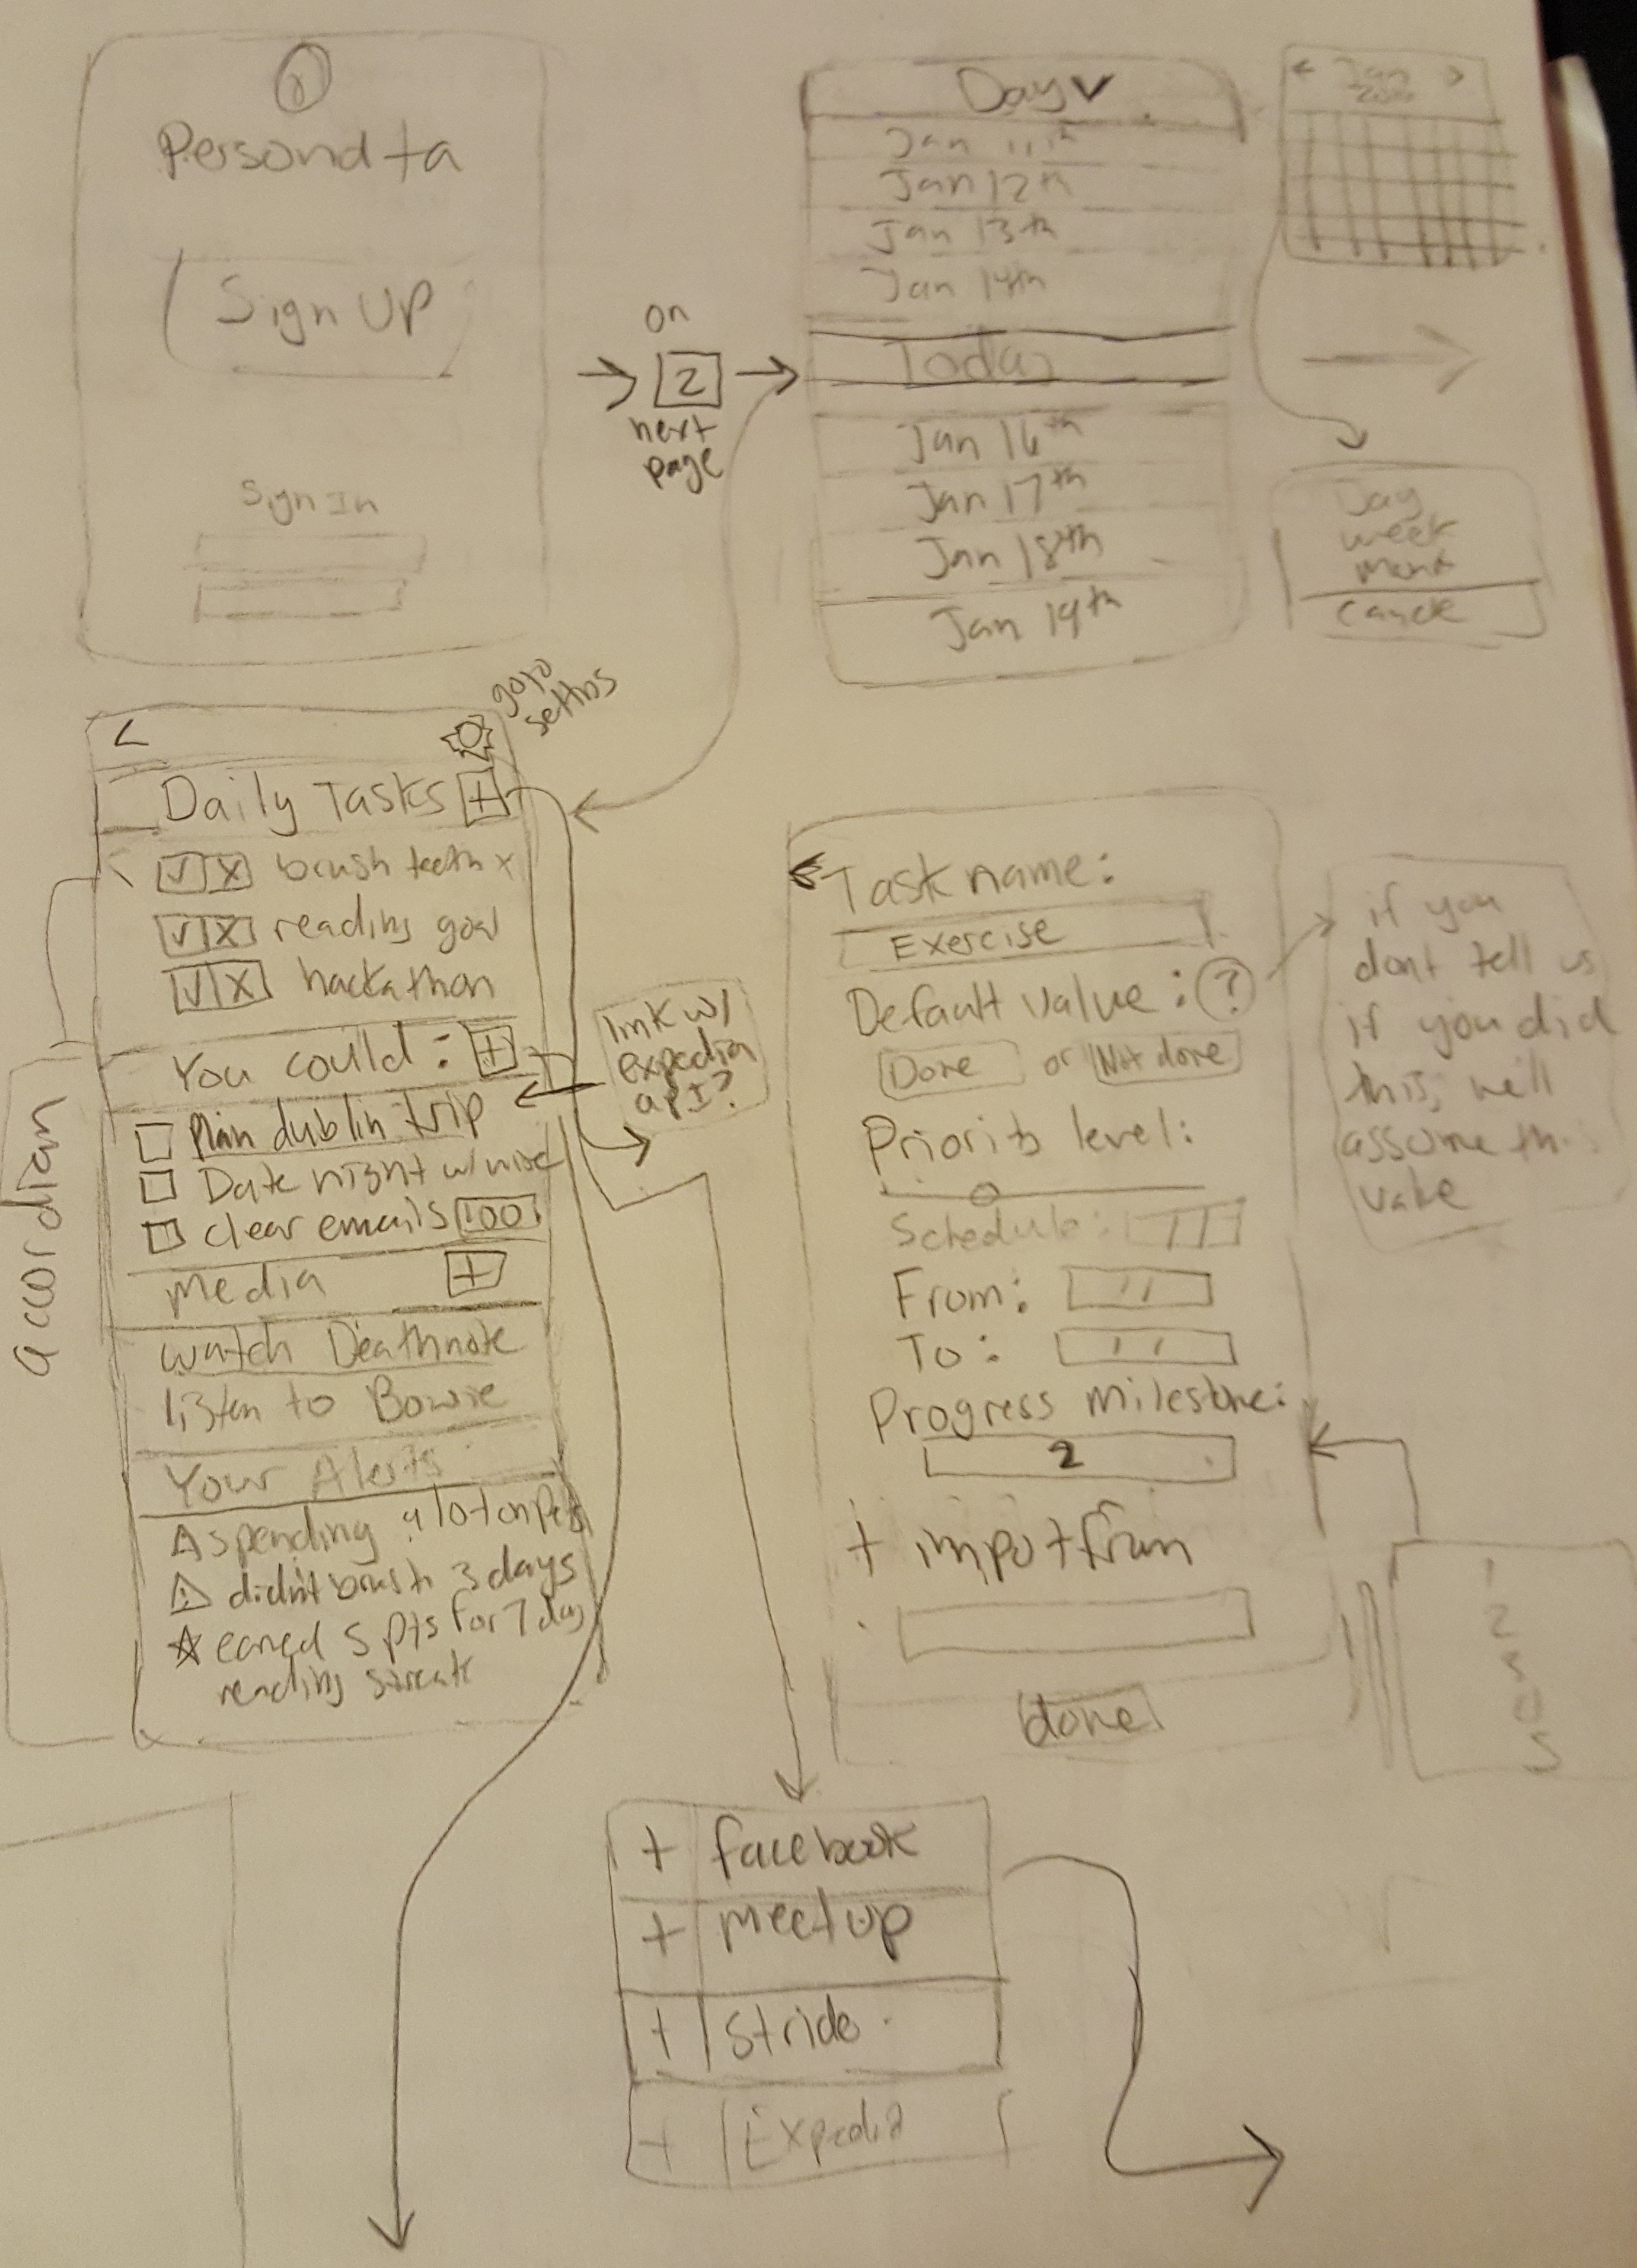 Persondta
Sign Up
Sign In
on
2
next
page
Day
Jan 11th
Jan 12th
Jan 13th
Jan 14th
Today
Jan 16th
Jan 17th
Jan 18th
Jan 19th
< Jan >
Day
week
cancle
<
go to
Daily Tasks +
✓ X brush teeth x
✓ X reading goal
✓ X hackathon
You could: +
Plan dublin trip
Date night w/
clear emails 100
Media +
watch Deathnote
listen to Bowie
Your Alerts
spending a lot on
didn't brush 3 days
earned 5 pts for 7 day
reading streak
accordian
link w/
expedia
apI?
Task name:
Exercise
Default value: ?
Done or Not done
Priority level:
Schedule: / /
From: / /
To: / /
Progress Milestone:
2
+ import from
done
if you
dont tell us
if you did
this, we'll
assume this
value
1
2
3
5
+ facebook
+ meetup
+ Stride
+ Expedia